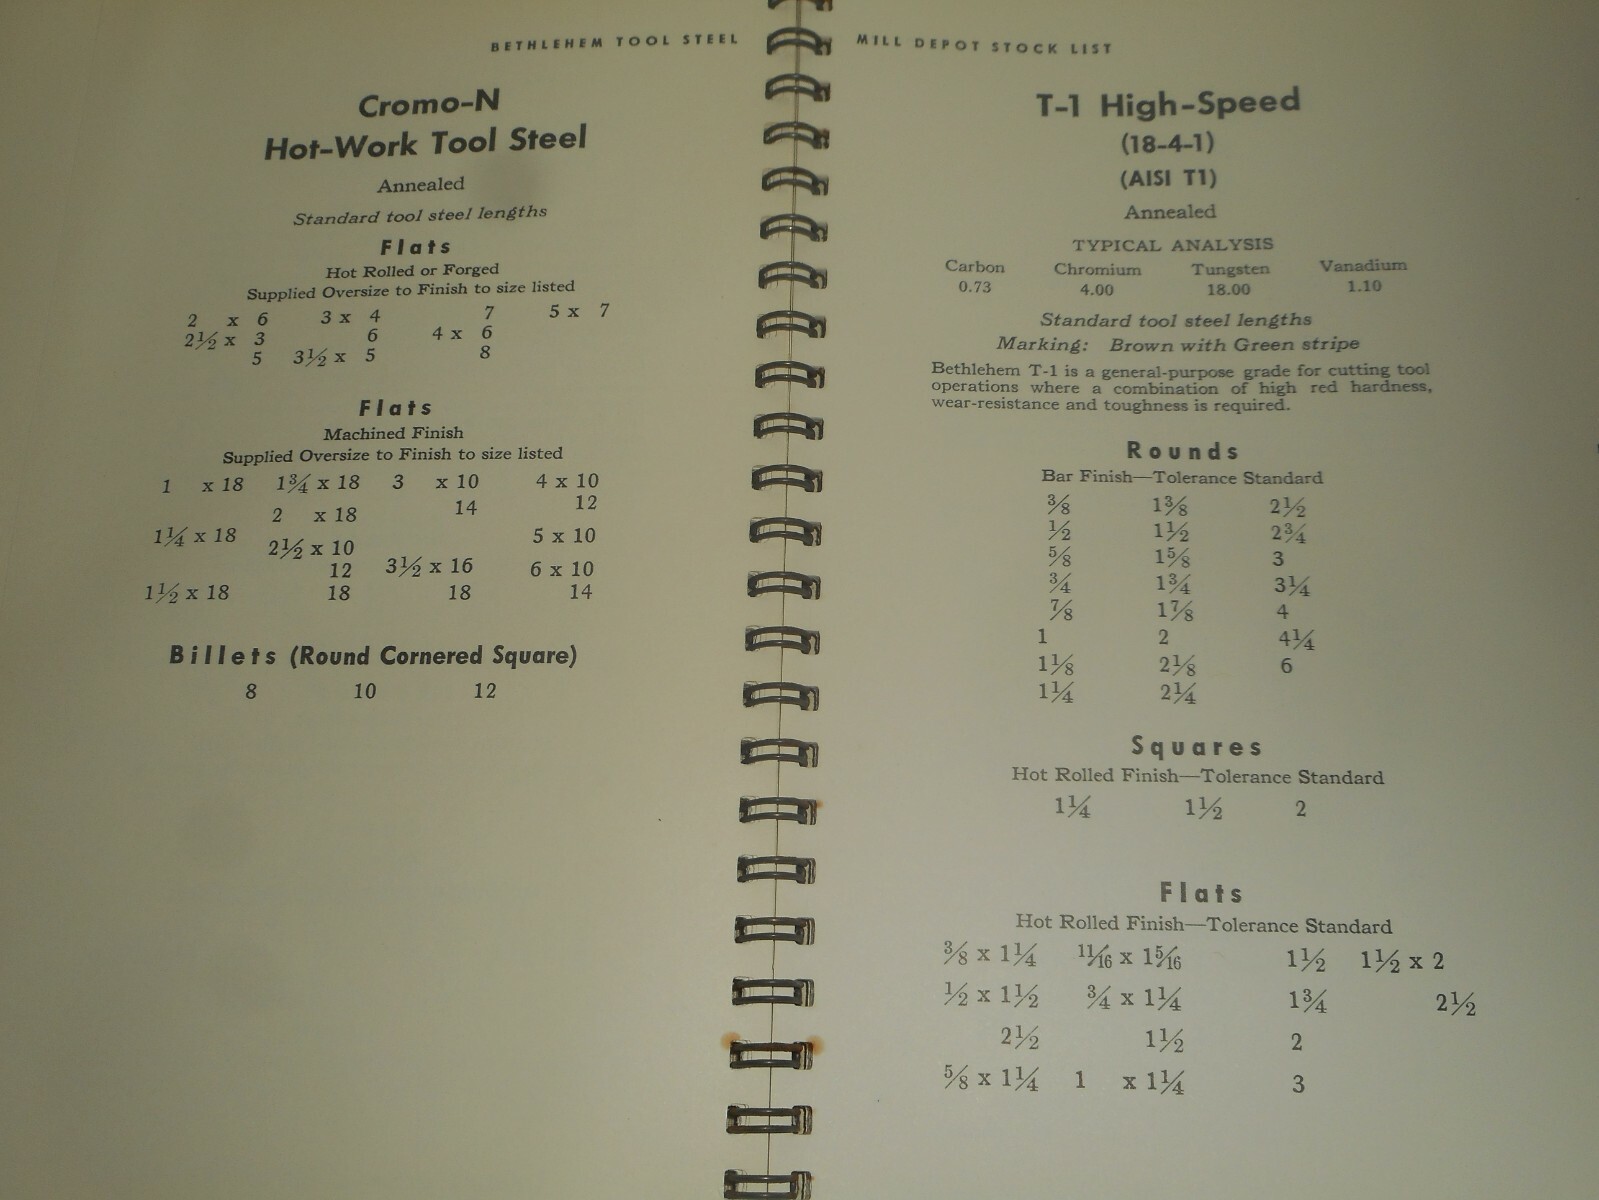 BETHLEHEM TOOL STEEL
Cromo-N
Hot-Work Tool Steel
Annealed
Standard tool steel lengths
Flats
Hot Rolled or Forged
Supplied Oversize to Finish to size listed
2 x 6 3 x 4 7 5 x 7
2½ x 3 6 4 x 6
5 3½ x 5 8
Flats
Machined Finish
Supplied Oversize to Finish to size listed
1 x 18 1¾ x 18 3 x 10 4 x 10
2 x 18 14 12
1¼ x 18 2½ x 10 5 x 10
12 3½ x 16 6 x 10
1½ x 18 18 18 14
Billets (Round Cornered Square)
8 10 12
MILL DEPOT STOCK LIST
T-1 High-Speed
(18-4-1)
(AISI T1)
Annealed
TYPICAL ANALYSIS
Carbon Chromium Tungsten Vanadium
0.73 4.00 18.00 1.10
Standard tool steel lengths
Marking: Brown with Green stripe
Bethlehem T-1 is a general-purpose grade for cutting tool
operations where a combination of high red hardness,
wear-resistance and toughness is required.
Rounds
Bar Finish—Tolerance Standard
⅜ 1⅜ 2½
½ 1½ 2¾
⅝ 1⅝ 3
¾ 1¾ 3¼
⅞ 1⅞ 4
1 2 4¼
1⅛ 2⅛ 6
1¼ 2¼
Squares
Hot Rolled Finish—Tolerance Standard
1¼ 1½ 2
Flats
Hot Rolled Finish—Tolerance Standard
⅜ x 1¼ 11/16 x 15/16 1½ 1½ x 2
½ x 1½ ¾ x 1¼ 1¾ 2½
2½ 1½ 2
⅝ x 1¼ 1 x 1¼ 3